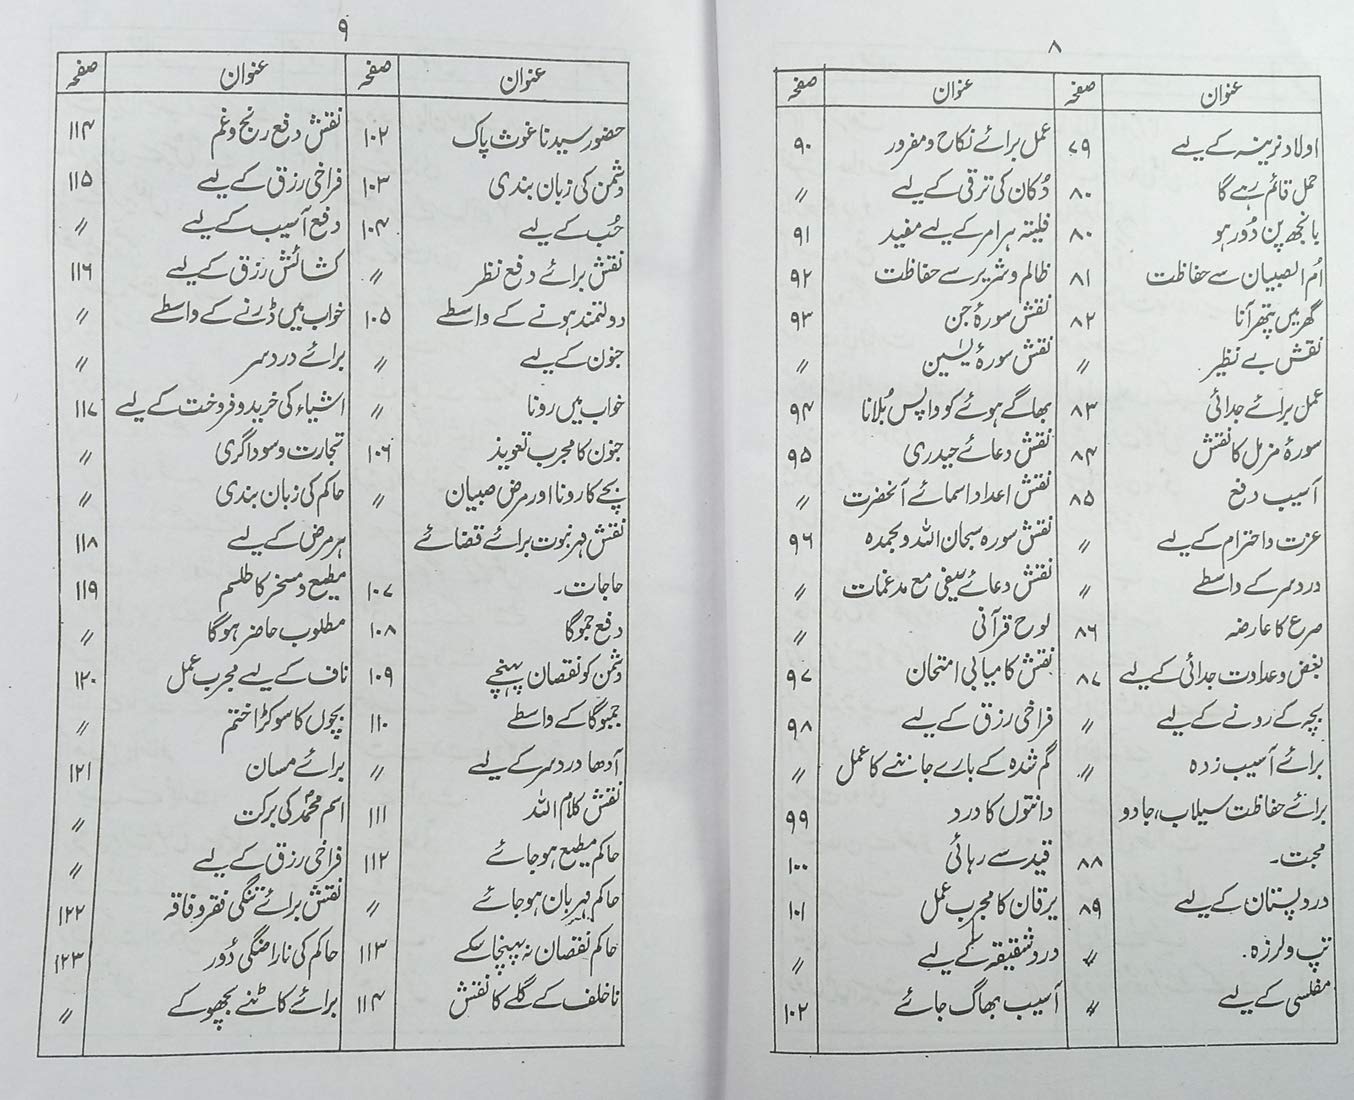 ۸
عنوان صفحہ عنوان صفحہ
اولاد نرینہ کے لیے ۷۹ عمل برائے نکاح و مفرور ۹۰
حمل قائم رہے گا ۸۰ دُکان کی ترقی کے لیے 〃
بانجھ پن دُور ہو ۸۰ فلیتہ ہر امر کے لیے مفید ۹۱
اُم الصبیان سے حفاظت ۸۱ ظالم و شریر سے حفاظت ۹۲
گھر میں پتھر آنا ۸۲ نقش سورۂ جن ۹۳
نقش بے نظیر 〃 نقش سورۂ یٰسین 〃
عمل برائے جدائی ۸۳ بھاگے ہوئے کو واپس بُلانا ۹۴
سورۂ مزمل کا نقش ۸۴ نقش دعائے حیدری ۹۵
آسیب دفع ۸۵ نقش اعداد اسمائے آنحضرت 〃
عزت و احترام کے لیے 〃 نقش سورہ سبحان اللہ وبحمدہ ۹۶
درد سر کے واسطے 〃 نقش دعائے سیفی مع مدغمات 〃
صرع کا عارضہ ۸۶ لوح قرآنی 〃
بغض و عداوت جدائی کے لیے ۸۷ نقش کامیابی امتحان ۹۷
بچہ کے رونے کے لیے 〃 فراخی رزق کے لیے ۹۸
برائے آسیب زدہ 〃 گم شدہ کے بارے جاننے کا عمل 〃
برائے حفاظت سیلاب، جادو دانتوں کا درد ۹۹
محبت۔ ۸۸ قید سے رہائی ۱۰۰
درد پستان کے لیے ۸۹ یرقان کا مجرب عمل ۱۰۱
تپ ولرزہ۔ 〃 درد شقیقہ کے لیے 〃
مفلسی کے لیے 〃 آسیب بھاگ جائے ۱۰۲
۹
عنوان صفحہ عنوان صفحہ
حضور سیدنا غوث پاک ۱۰۲ نقش دفع رنج و غم ۱۱۴
دشمن کی زبان بندی ۱۰۳ فراخی رزق کے لیے ۱۱۵
حُب کے لیے ۱۰۴ دفع آسیب کے لیے 〃
نقش برائے دفع نظر 〃 کشائش رزق کے لیے ۱۱۶
دولتمند ہونے کے واسطے ۱۰۵ خواب میں ڈرنے کے واسطے 〃
جنون کے لیے 〃 برائے درد سر 〃
خواب میں رونا 〃 اشیاء کی خرید و فروخت کے لیے ۱۱۷
جنون کا مجرب تعویذ ۱۰۶ تجارت و سوداگری 〃
بچے کا رونا اور مرض صبیان 〃 حاکم کی زبان بندی 〃
نقش مہر نبوت برائے قضائے ہر مرض کے لیے ۱۱۸
حاجات۔ ۱۰۷ مطیع و مسخر کا طلسم ۱۱۹
دفع جموگا ۱۰۸ مطلوب حاضر ہوگا 〃
دشمن کو نقصان پہنچے ۱۰۹ ناف کے لیے مجرب عمل ۱۲۰
جموگا کے واسطے ۱۱۰ بچوں کا سوکڑا ختم 〃
آدھا درد سر کے لیے 〃 برائے مسان ۱۲۱
نقش کلام اللہ ۱۱۱ اسم محمدؐ کی برکت 〃
حاکم مطیع ہو جائے ۱۱۲ فراخی رزق کے لیے 〃
حاکم مہربان ہو جائے 〃 نقش برائے تنگی فقر و فاقہ ۱۲۲
حاکم نقصان نہ پہنچا سکے ۱۱۳ حاکم کی ناراضگی دُور ۱۲۳
ناخلف کے گلے کا نقش ۱۱۴ برائے کاٹنے بچھو کے 〃